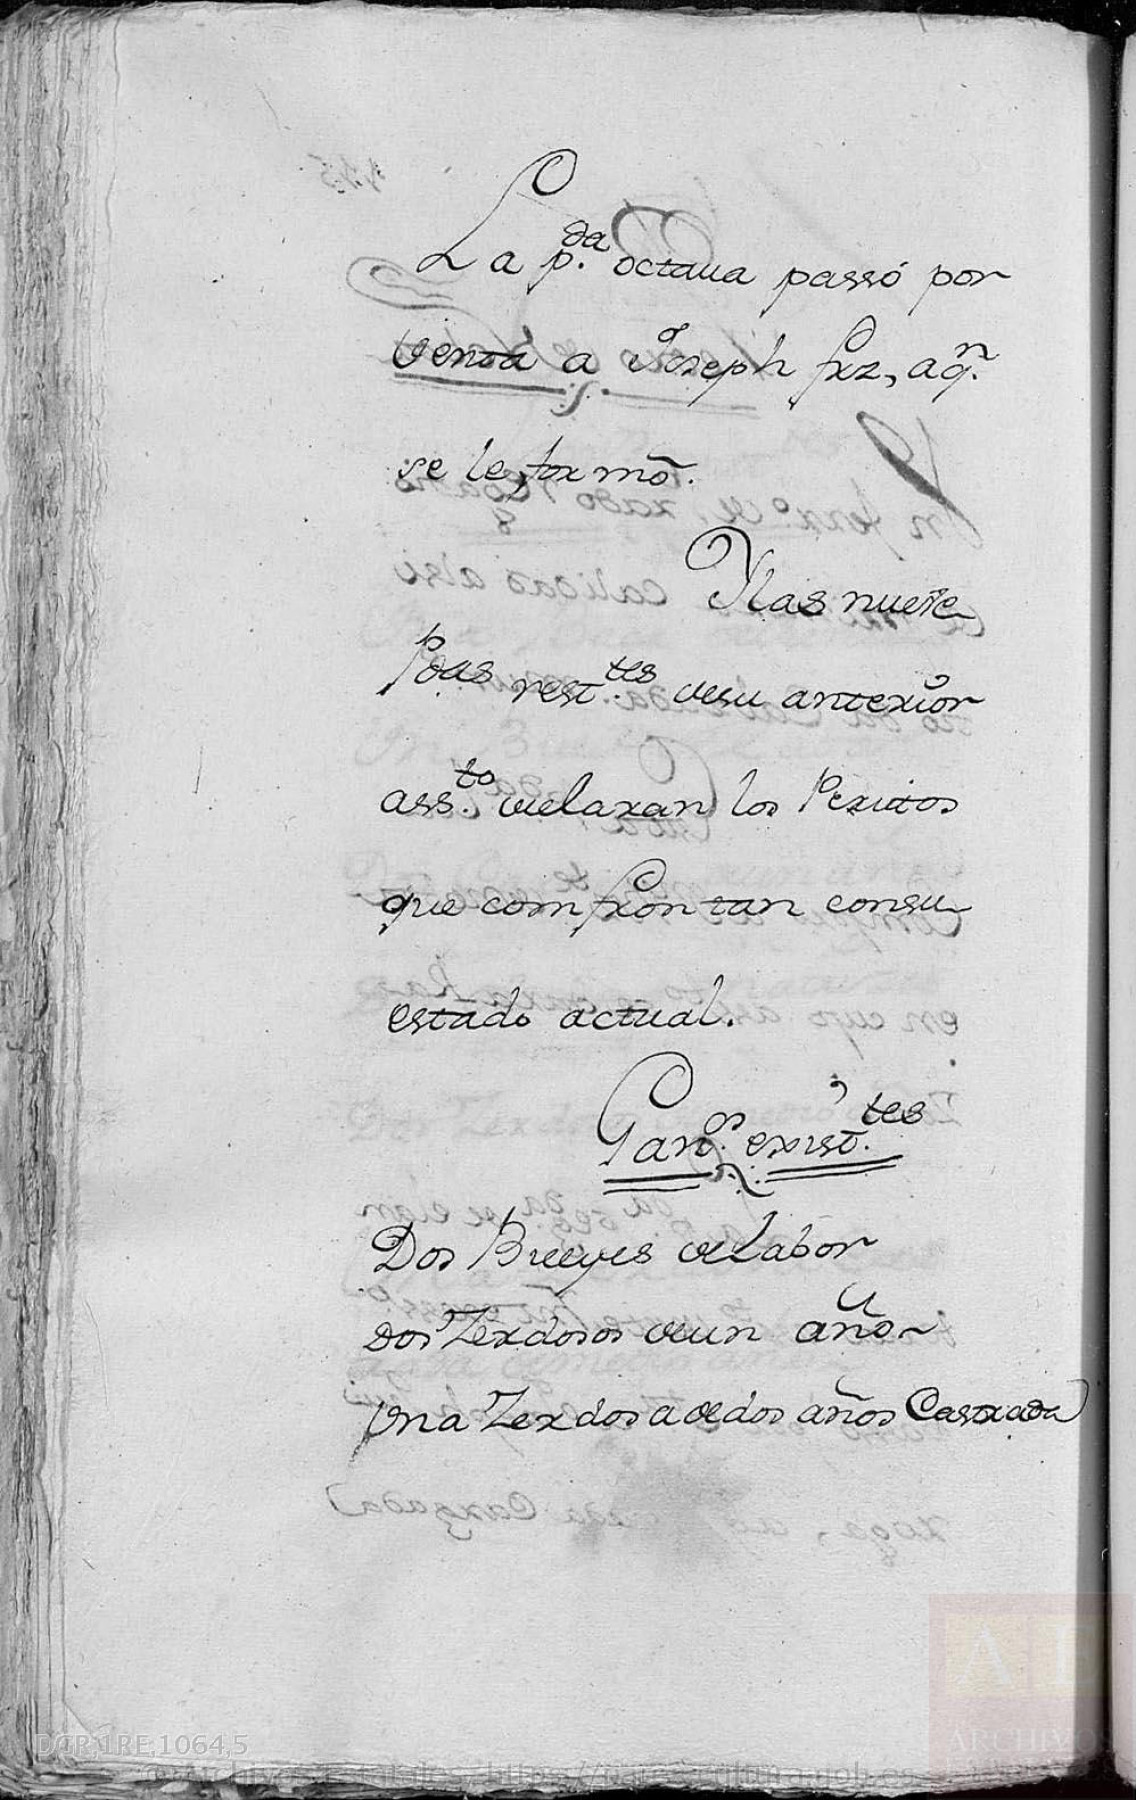 La p.da octaua passó por
venta a Joseph frz, aq.n
se le formó.
Ylas nueve
Pdas rest.tes desu anterior
ass.to delaran los Peritos
que comfrontan consu
estado actual.
Gan.os exist.tes
Dos Bueyes de Labor
Dos Terdosos deun año
Una Terdosa de dos años
DGP,1RE,1064,5
ARCHIVOS